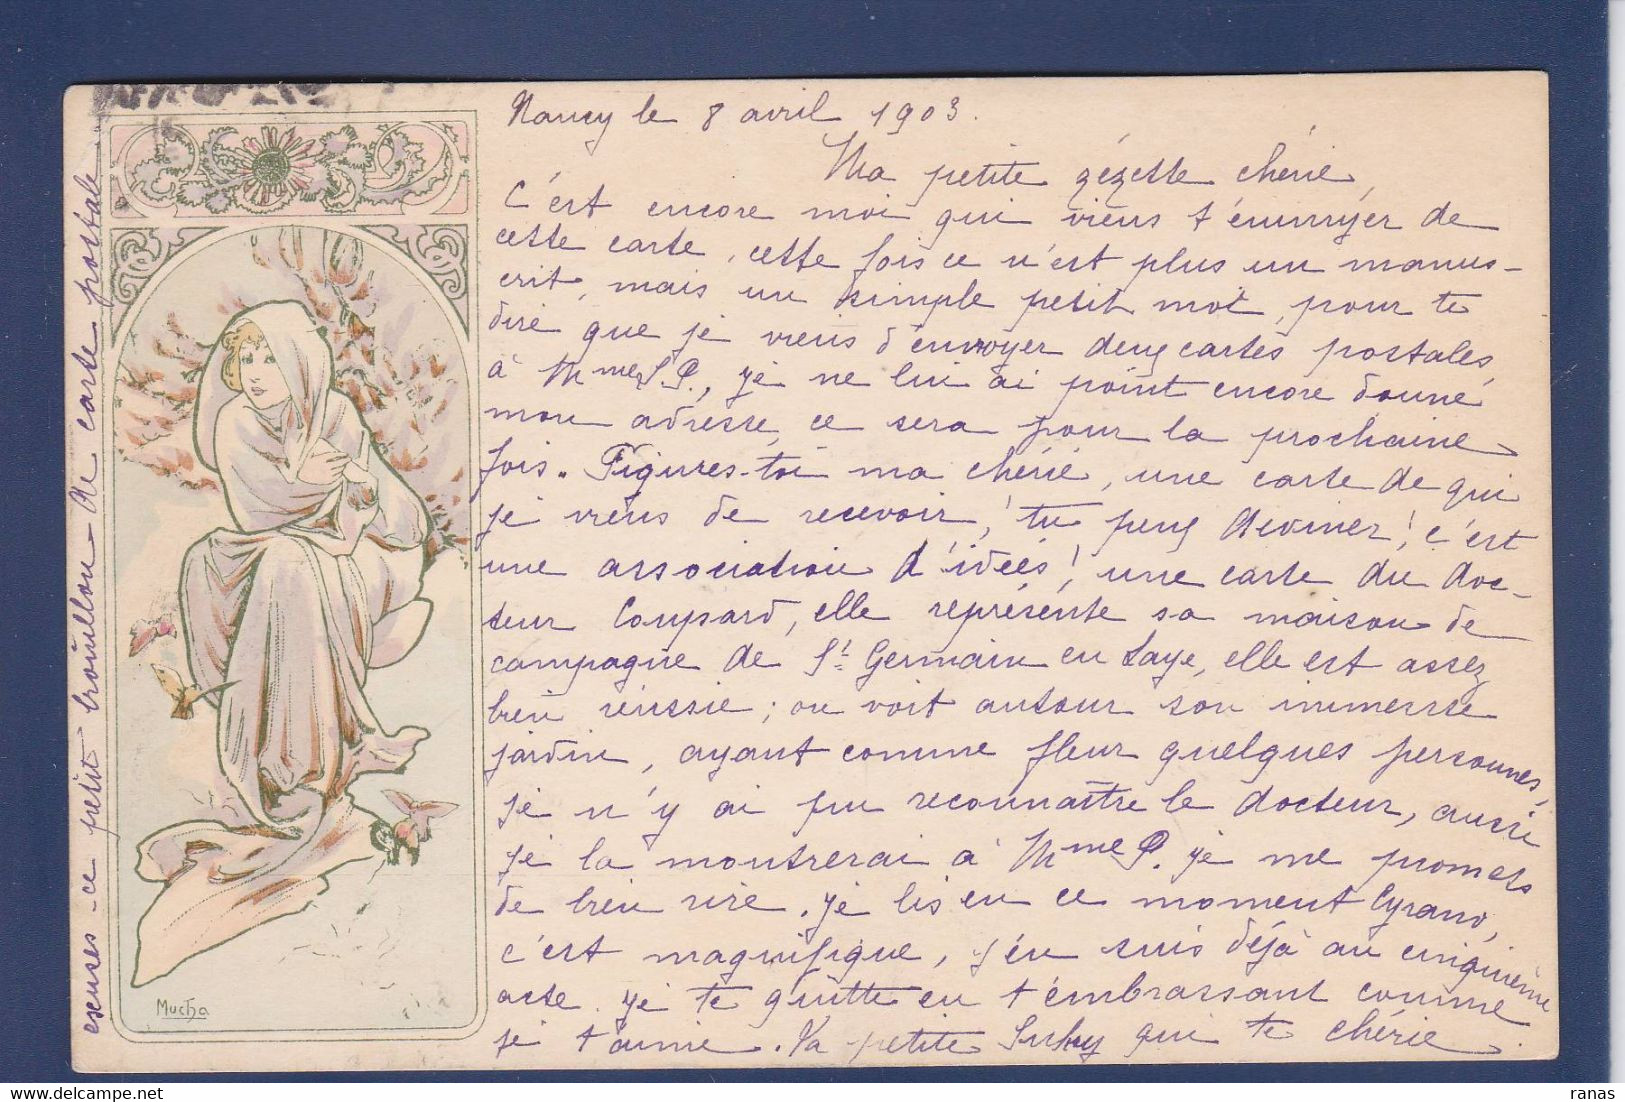 Nancy le 8 avril 1903.
Ma petite zézette chérie,
C'est encore moi qui viens t'ennuyer de
cette carte, cette fois ce n'est plus un manus-
crit, mais un simple petit mot, pour te
dire que je viens d'envoyer deux cartes postales
à Mme P., je ne lui ai point encore donné
mon adresse, ce sera pour la prochaine
fois. Figures-toi ma chérie, une carte de qui
je viens de recevoir, tu peux deviner! c'est
une association d'idées! une carte du doc-
teur Coupard, elle représente sa maison de
campagne de St Germain en Laye, elle est assez
bien réussie; on voit autour son immense
jardin, ayant comme fleur quelques personnes,
je n'y ai pu reconnaître le docteur, aussi
je la montrerai à Mme P. je me promets
de bien rire. je lis en ce moment Cyrano,
c'est magnifique, j'en suis déjà au cinquième
acte. je te quitte en t'embrassant comme
je t'aime. Ta petite qui te chérie.
excuses-ce petit brouillon-de carte postale
Mucha
ranas